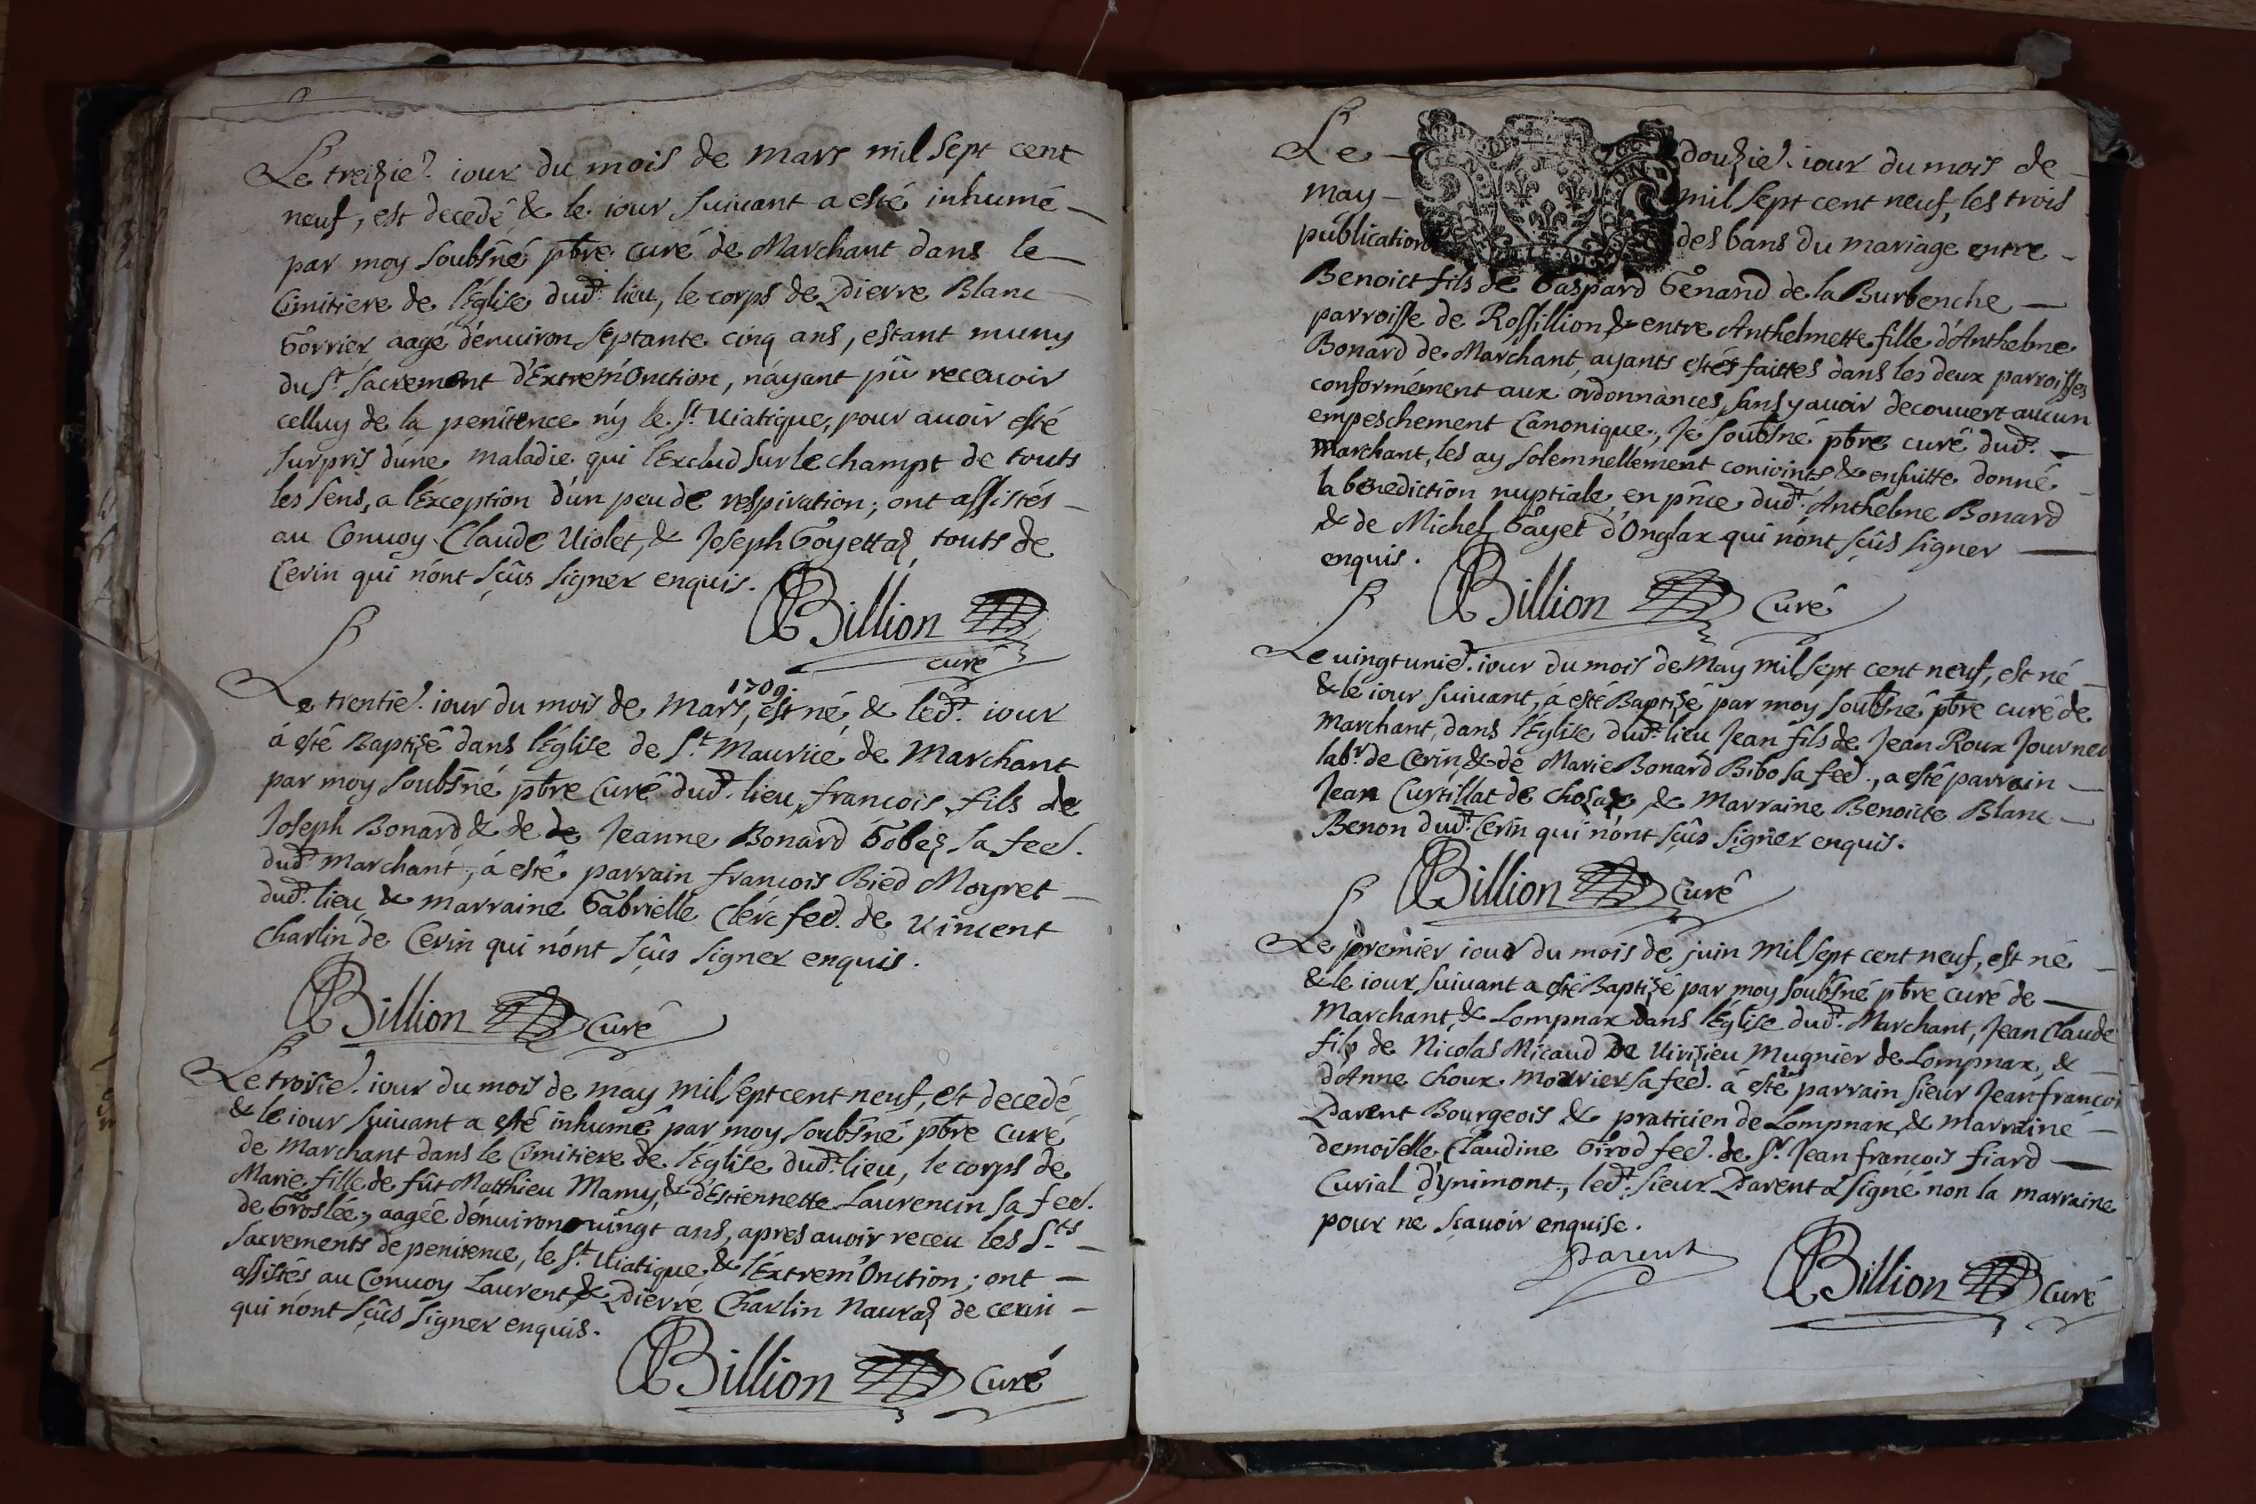 Le treizie. iour du mois de mars mil sept cent
neuf, est decedé & le iour suiuant a esté inhumé
par moy soubsné pbre curé de Marchant dans le
Cimitiere de l'Eglise dud. lieu, le corps de Pierre Blanc
Gorrier aagé d'enuiron septante cinq ans, estant muny
du St. Sacrement d'Extrem'Onction, n'ayant pû receuoir
celluy de la penitence n'y le St. Uiatique, pour auoir esté
surpris d'une maladie qui l'Exclud sur le champt de touts
les sens, a l'éxception d'un peu de respiration; ont assistés
au Conuoy Claude Uiolet, & Joseph Goyettaz touts de
Cerin qui n'ont sçûs signer enquis.
Billion
curé
1709.
Le trentie. iour du mois de Mars, est né & led. iour
á esté Baptizé dans l'Eglise de St. Maurice de Marchant
par moy soubsné pbre Curé dud. lieu, francois fils de
Joseph Bonard & de de Jeanne Bonard Gobez sa fee.
dud. Marchant, á esté parrain francois Bied Moyret
dud. lieu & marraine Gabrielle Clérc fee. de Uincent
Charlin de Cerin qui n'ont sçûs signer enquis.
Billion Curé
Le troisie. iour du mois de may mil sept cent neuf, est decedé
& le iour suiuant a esté inhumé par moy soubsné pbre curé
de Marchant dans le Cimitiere de l'Eglise dud. lieu, le corps de
Marie fille de fût Matthieu Mamy, & d'Estiennette Laurencin sa fee.
de Groslée, aagée d'enuiron uingt ans, apres auoir receu les Sts
Sacrements de penitence, le St. Uiatique & l'Extrem'Onction; ont
assistés au Conuoy Laurent & Pierre Charlin Nauraz de cerin
qui n'ont sçûs signer enquis.
Billion Curé
Le douzie. iour du mois de
may mil sept cent neuf, les trois
publications des bans du mariage entre
Benoict fils de Gaspard Genand de la Burbenche
parroisse de Rossillion & entre Anthelmette fille d'Anthelme
Bonard de Marchant, ayants estés faittes dans les deux parroisses
conformément aux ordonnances, sans y auoir decouuert aucun
empeschement Canonique, Je soubsné pbre curé dud.
Marchant, les ay solemnellement conioints & ensuitte donné
la benediction nuptiale, en pnce dud. Anthelme Bonard
& de Michel Gayet d'Onglax qui n'ont sçûs signer
enquis.
Billion Curé
Le uingt unie. iour du mois de May mil sept cent neuf, est né
& le iour suiuant, á esté Baptizé par moy soubsné pbre curé de
Marchant, dans l'Eglise dud. lieu Jean fils de Jean Roux Journet
labr. de Cerin & de Marie Bonard Bibo sa fee., a esté parrain
Jean Curtillat de & Marraine Benoicte Blanc
Benon dud. Cerin qui n'ont sçûs signer enquis.
Billion Curé
Le premier iour du mois de juin mil sept cent neuf, est né
& le iour suiuant a esté Baptizé par moy soubsné pbre curé de
Marchant, & Lompnax dans l'Eglise dud. Marchant, Jean Claude
fils de Nicolas Micaud De Uirizieu Mugnier de Lompnax, &
d'Anne Choux Mourier sa fee. á esté parrain sieur Jean francois
Parent Bourgeois & praticien de Lompnax, & Marraine
demoiselle Claudine Girod fee. de Sr. Jean francois fiard
Curial d'ynimont, led. sieur Parent á signé non la marraine
pour ne sçauoir enquise.
Parent
Billion Curé